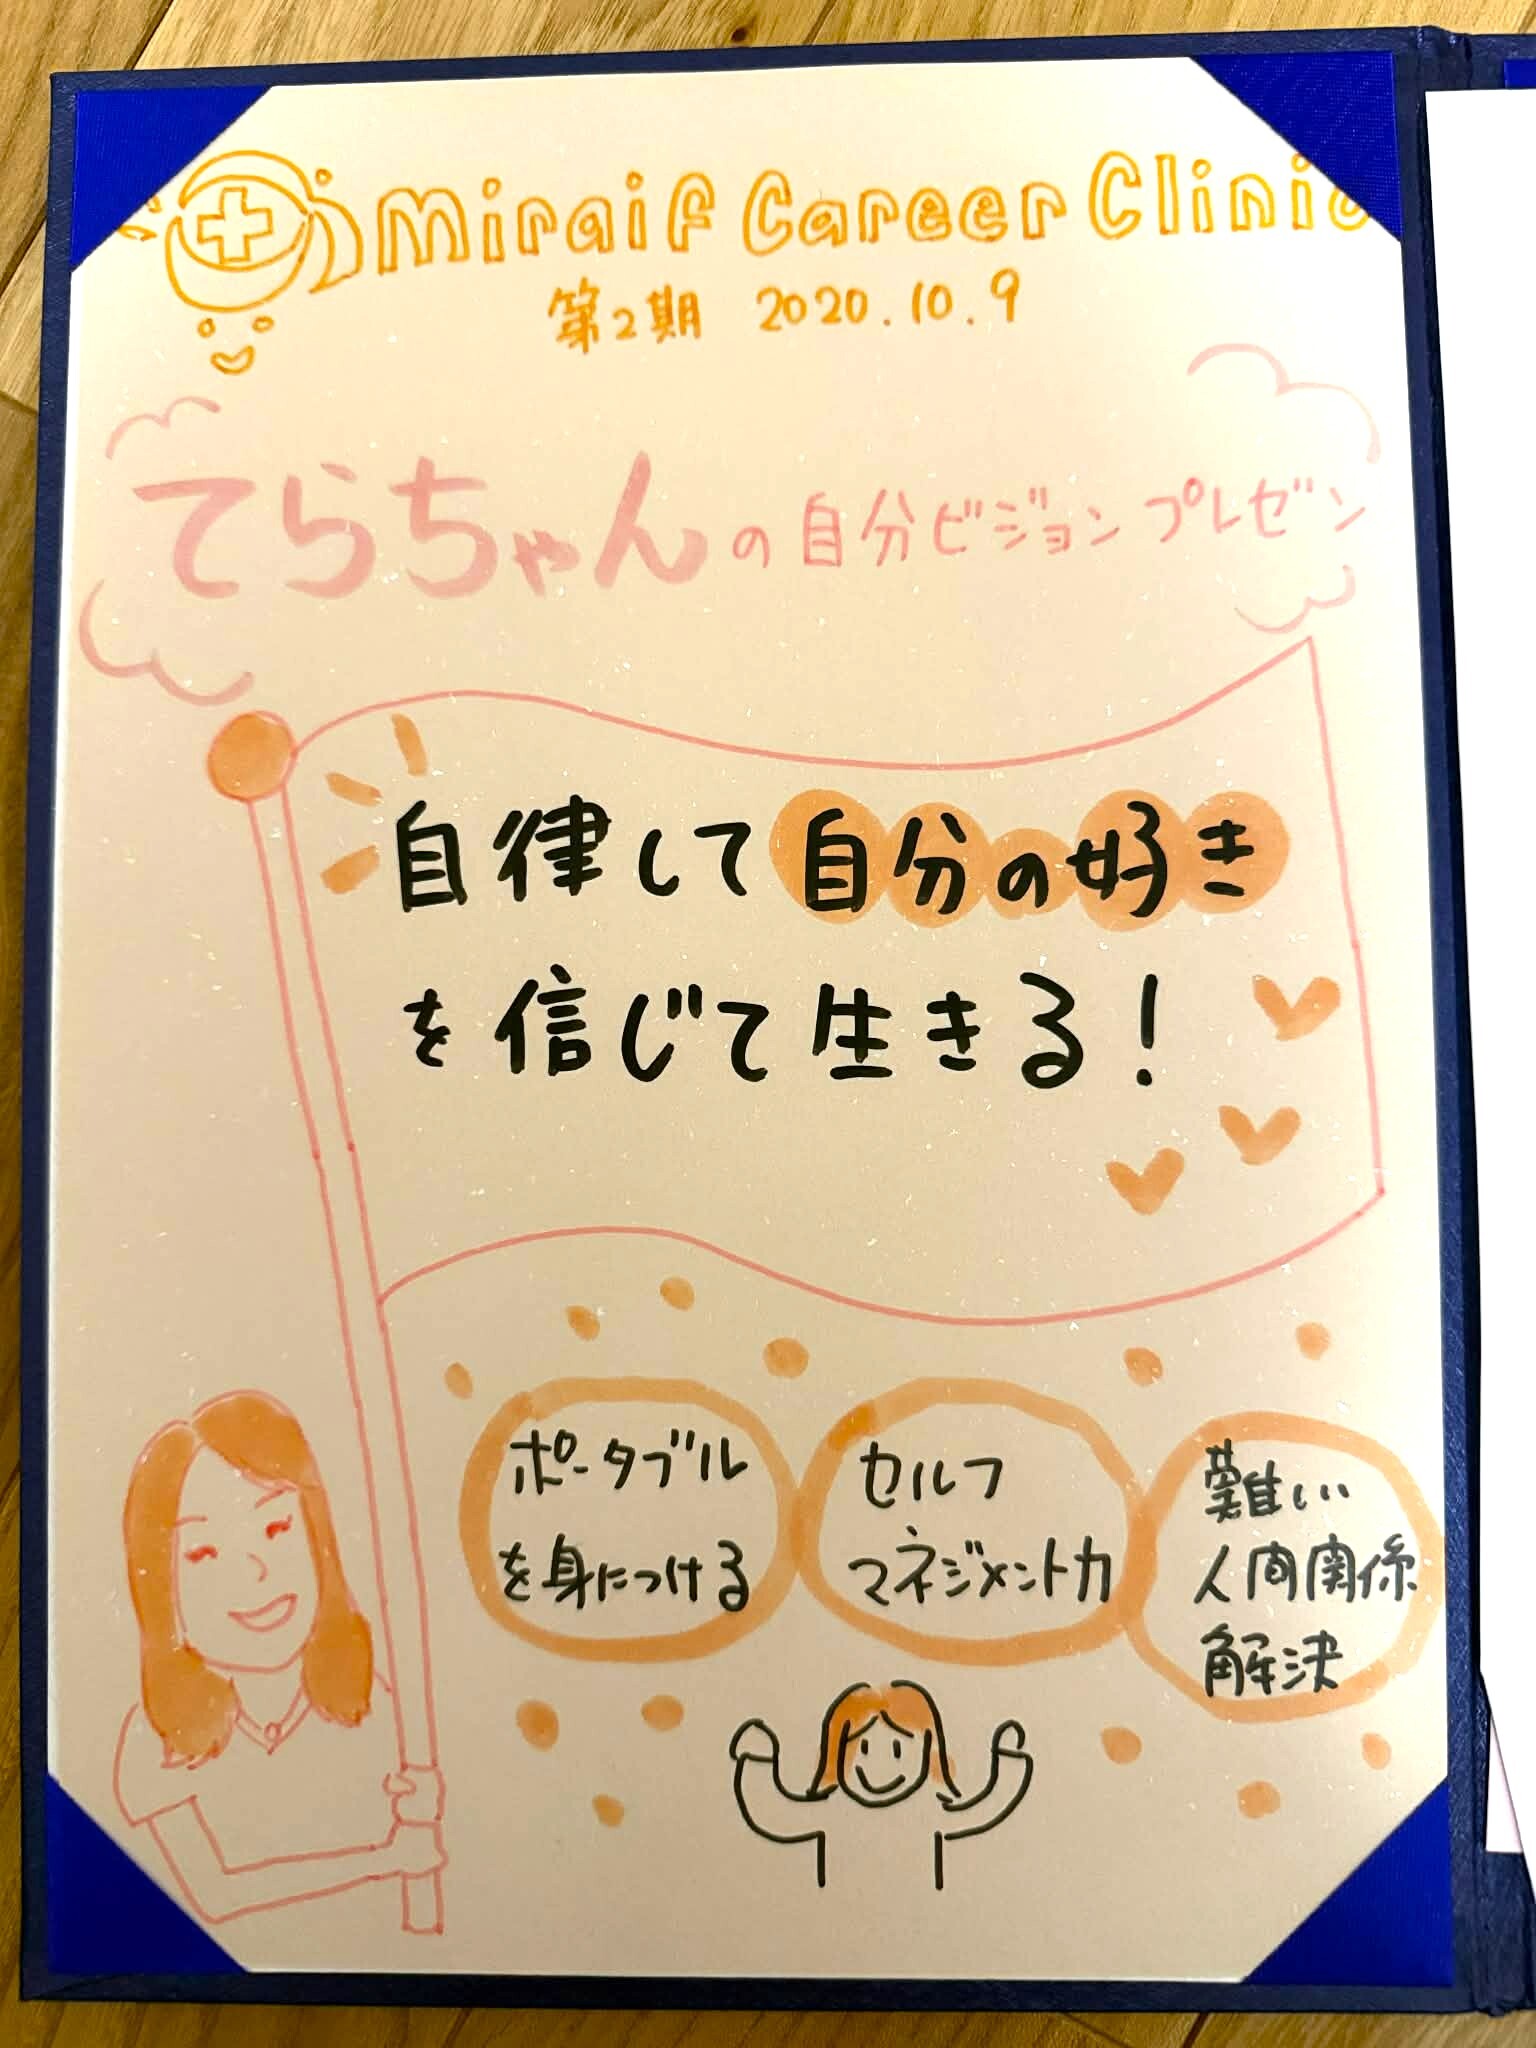 Miraif Career Clinic
第2期 2020.10.9
てらちゃんの自分ビジョンプレゼン
自律して自分の好き
を信じて生きる!
ポータブル
を身につける
セルフ
マネジメント力
難しい
人間関係
解決